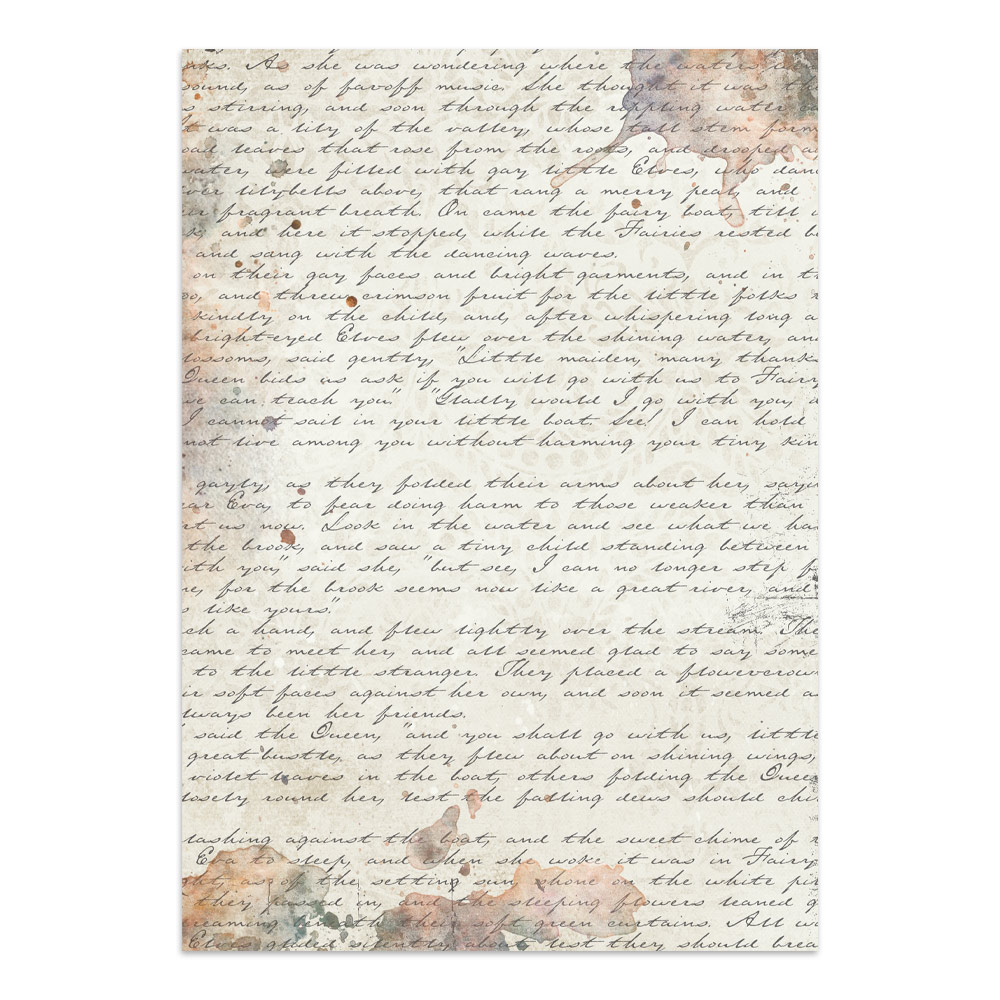 aks. As she was wondering where the waters
ound, as of faroff music. She thought it was th
s stirring, and soon through the rippling water ca
t was a lily of the valley, whose tall stem form
oad leaves that rose from the roots, and drooped a
vater, were filled with gay little Elves, who danc
ver lilybells above, that rang a merry peal, and
ir fragrant breath. On came the fairy boat, till i
k, and here it stopped, while the Fairies rested b
and sang with the dancing waves.
on their gay faces and bright garments, and in t
oo, and threw crimson fruit for the little folks
kindly on the child, and, after whispering long a
bright-eyed Elves flew over the shining water, an
lossoms, said gently, "Little maiden, many thank
Queen bids us ask if you will go with us to Fairy
we can teach you." "Gladly would I go with you,
I cannot sail in your little boat. See! I can hold
not live among you without harming your tiny kin
gayly, as they folded their arms about her, sayin
ar Eva, to fear doing harm to those weaker than
rt us now. Look in the water and see what we ha
the brook, and saw a tiny child standing between
ith you," said she, "but see, I can no longer step f
ne, for the brook seems now like a great river, and
s like yours."
ch a hand, and flew lightly over the stream. The
came to meet her, and all seemed glad to say some
to the little stranger. They placed a flowercrow
ir soft faces against her own, and soon it seemed a
lways been her friends.
" said the Queen, "and you shall go with us, little
great bustle, as they flew about on shining wings,
violet leaves in the boat, others folding the Quee
losely round her, lest the falling dews should chi
lashing against the boat, and the sweet chime of
Eva to sleep, and when she woke it was in Fairy
ght, as of the setting sun, shone on the white pi
they passed in, and the sleeping flowers leaned g
reaming beneath their soft green curtains. All w
Elves glided silently about, lest they should brea